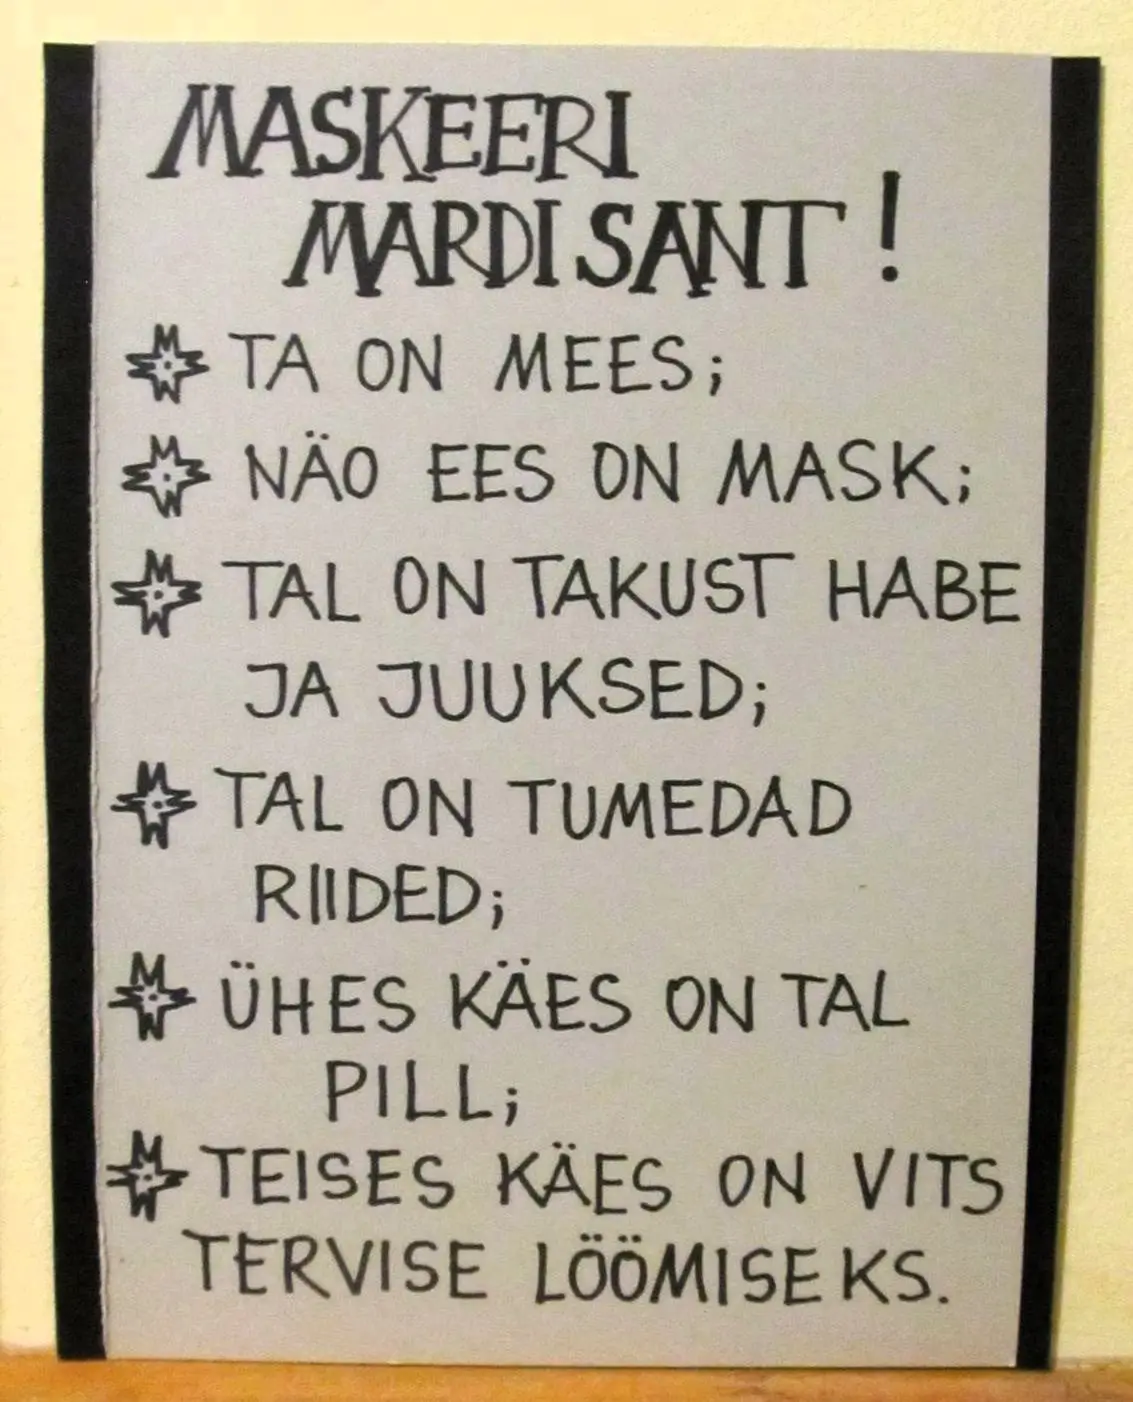 MASKEERI
MARDISANT!
TA ON MEES;
NÄO EES ON MASK;
TAL ON TAKUST HABE
JA JUUKSED;
TAL ON TUMEDAD
RIIDED;
ÜHES KÄES ON TAL
PILL;
TEISES KÄES ON VITS
TERVISE LÖÖMISEKS.